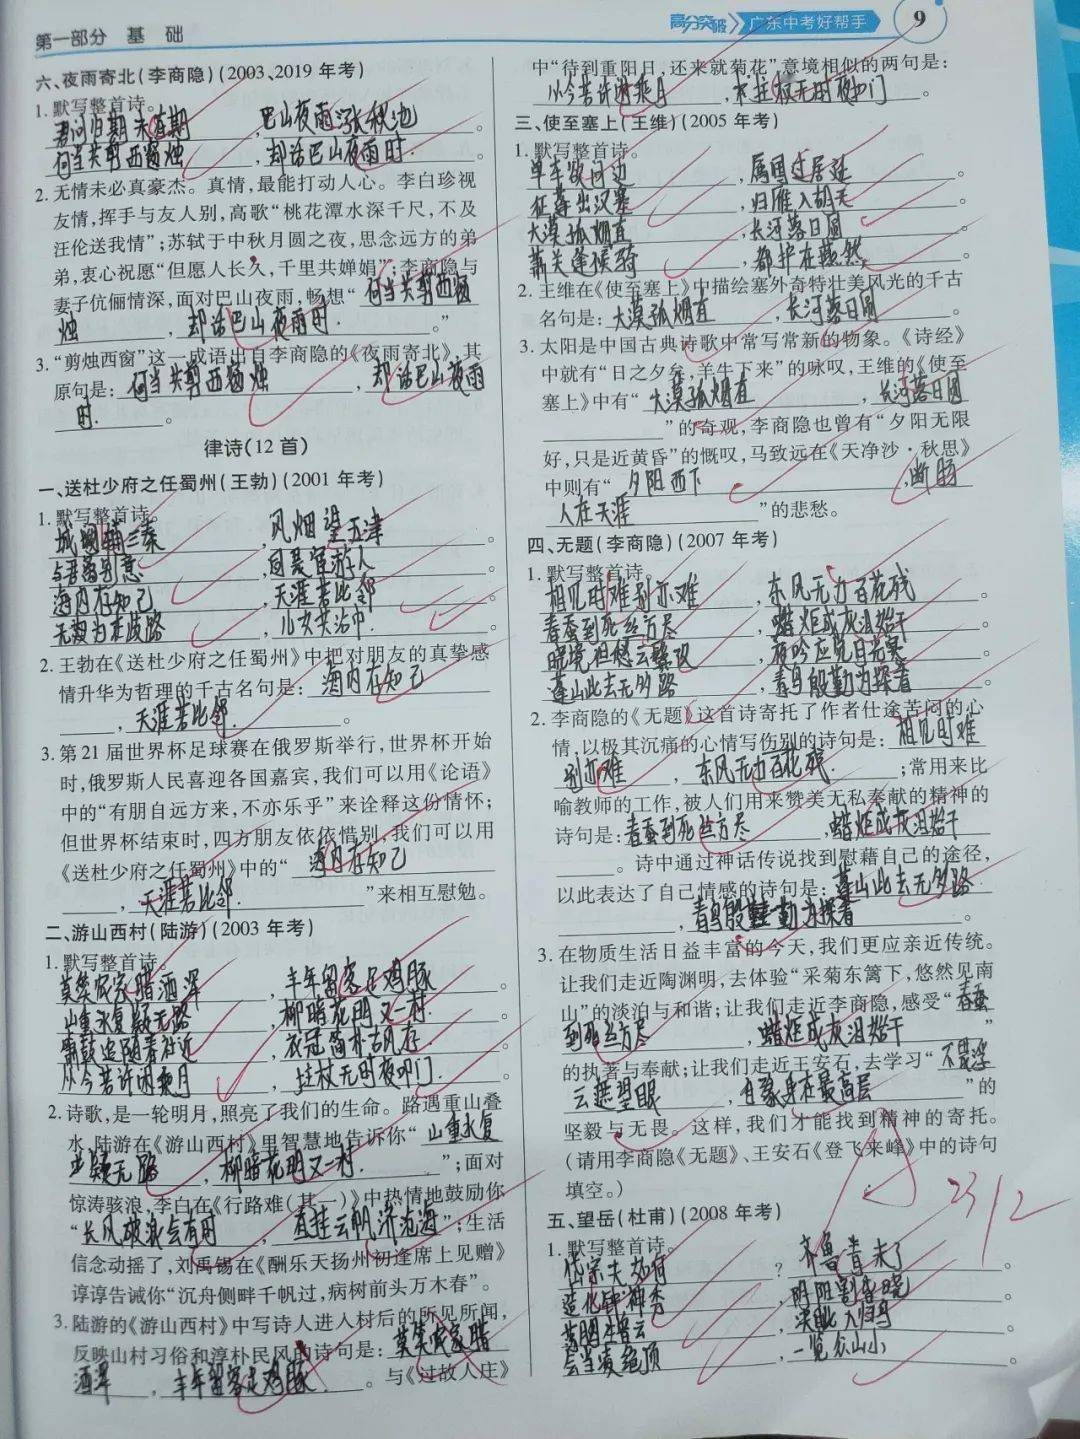 第一部分 基 础
高分突破 广东中考好帮手 9
六、夜雨寄北(李商隐)(2003、2019年考)
1. 默写整首诗。
君问归期未有期,巴山夜雨涨秋池。
何当共剪西窗烛,却话巴山夜雨时.。
2. 无情未必真豪杰。真情,最能打动人心。李白珍视
友情,挥手与友人别,高歌“桃花潭水深千尺,不及
汪伦送我情”;苏轼于中秋月圆之夜,思念远方的弟
弟,衷心祝愿“但愿人长久,千里共婵娟”;李商隐与
妻子伉俪情深,面对巴山夜雨,畅想“何当共剪西窗
烛,却话巴山夜雨时.。”
3. “剪烛西窗”这一成语出自李商隐的《夜雨寄北》,其
原句是:何当共剪西窗烛,却话巴山夜雨
时.。
律诗(12首)
一、送杜少府之任蜀州(王勃)(2001年考)
1. 默写整首诗。
城阙辅三秦,风烟望五津。
与君离别意,同是宦游人。
海内存知己,天涯若比邻。
无为在歧路,儿女共沾巾.。
2. 王勃在《送杜少府之任蜀州》中把对朋友的真挚感
情升华为哲理的千古名句是:海内存知己
,天涯若比邻.。
3. 第21届世界杯足球赛在俄罗斯举行,世界杯开始
时,俄罗斯人民喜迎各国嘉宾,我们可以用《论语》
中的“有朋自远方来,不亦乐乎”来诠释这份情怀;
但世界杯结束时,四方朋友依依惜别,我们可以用
《送杜少府之任蜀州》中的“海内存知己
,天涯若比邻.”来相互慰勉。
二、游山西村(陆游)(2003年考)
1. 默写整首诗。
莫笑农家腊酒浑,丰年留客足鸡豚。
山重水复疑无路,柳暗花明又一村.。
箫鼓追随春社近,衣冠简朴古风存。
从今若许闲乘月,拄杖无时夜叩门.。
2. 诗歌,是一轮明月,照亮了我们的生命。路遇重山叠
水,陆游在《游山西村》里智慧地告诉你“山重水复
疑无路,柳暗花明又一村.”;面对
惊涛骇浪,李白在《行路难(其一)》中热情地鼓励你
“长风破浪会有时,直挂云帆济沧海”;生活
信念动摇了,刘禹锡在《酬乐天扬州初逢席上见赠》
谆谆告诫你“沉舟侧畔千帆过,病树前头万木春”。
3. 陆游的《游山西村》中写诗人进入村后的所见所闻,
反映山村习俗和淳朴民风的诗句是:莫笑农家腊
酒浑,丰年留客足鸡豚.。与《过故人庄》
中“待到重阳日,还来就菊花”意境相似的两句是:
从今若许闲乘月,拄杖无时夜叩门。
三、使至塞上(王维)(2005年考)
1. 默写整首诗。
单车欲问边,属国过居延。
征蓬出汉塞,归雁入胡天。
大漠孤烟直,长河落日圆。
萧关逢候骑,都护在燕然。
2. 王维在《使至塞上》中描绘塞外奇特壮美风光的千古
名句是:大漠孤烟直,长河落日圆。
3. 太阳是中国古典诗歌中常写常新的物象。《诗经》
中就有“日之夕矣,羊牛下来”的咏叹,王维的《使至
塞上》中有“大漠孤烟直,长河落日圆
”的奇观,李商隐也曾有“夕阳无限
好,只是近黄昏”的慨叹,马致远在《天净沙·秋思》
中则有“夕阳西下,断肠
人在天涯”的悲愁。
四、无题(李商隐)(2007年考)
1. 默写整首诗。
相见时难别亦难,东风无力百花残。
春蚕到死丝方尽,蜡炬成灰泪始干。
晓镜但愁云鬓改,夜吟应觉月光寒。
蓬山此去无多路,青鸟殷勤为探看。
2. 李商隐的《无题》这首诗寄托了作者仕途苦闷的心
情,以极其沉痛的心情写伤别的诗句是:相见时难
别亦难,东风无力百花残.;常用来比
喻教师的工作,被人们用来赞美无私奉献的精神的
诗句是:春蚕到死丝方尽,蜡炬成灰泪始干
。诗中通过神话传说找到慰藉自己的途径,
以此表达了自己情感的诗句是:蓬山此去无多路
,青鸟殷勤为探看。
3. 在物质生活日益丰富的今天,我们更应亲近传统。
让我们走近陶渊明,去体验“采菊东篱下,悠然见南
山”的淡泊与和谐;让我们走近李商隐,感受“春蚕
到死丝方尽,蜡炬成灰泪始干”
的执著与奉献;让我们走近王安石,去学习“不畏浮
云遮望眼,自缘身在最高层”的
坚毅与无畏。这样,我们才能找到精神的寄托。
(请用李商隐《无题》、王安石《登飞来峰》中的诗句
填空。)
五、望岳(杜甫)(2008年考)
1. 默写整首诗。
岱宗夫如何?齐鲁青未了。
造化钟神秀,阴阳割昏晓。
荡胸生曾云,决眦入归鸟。
会当凌绝顶,一览众山小。